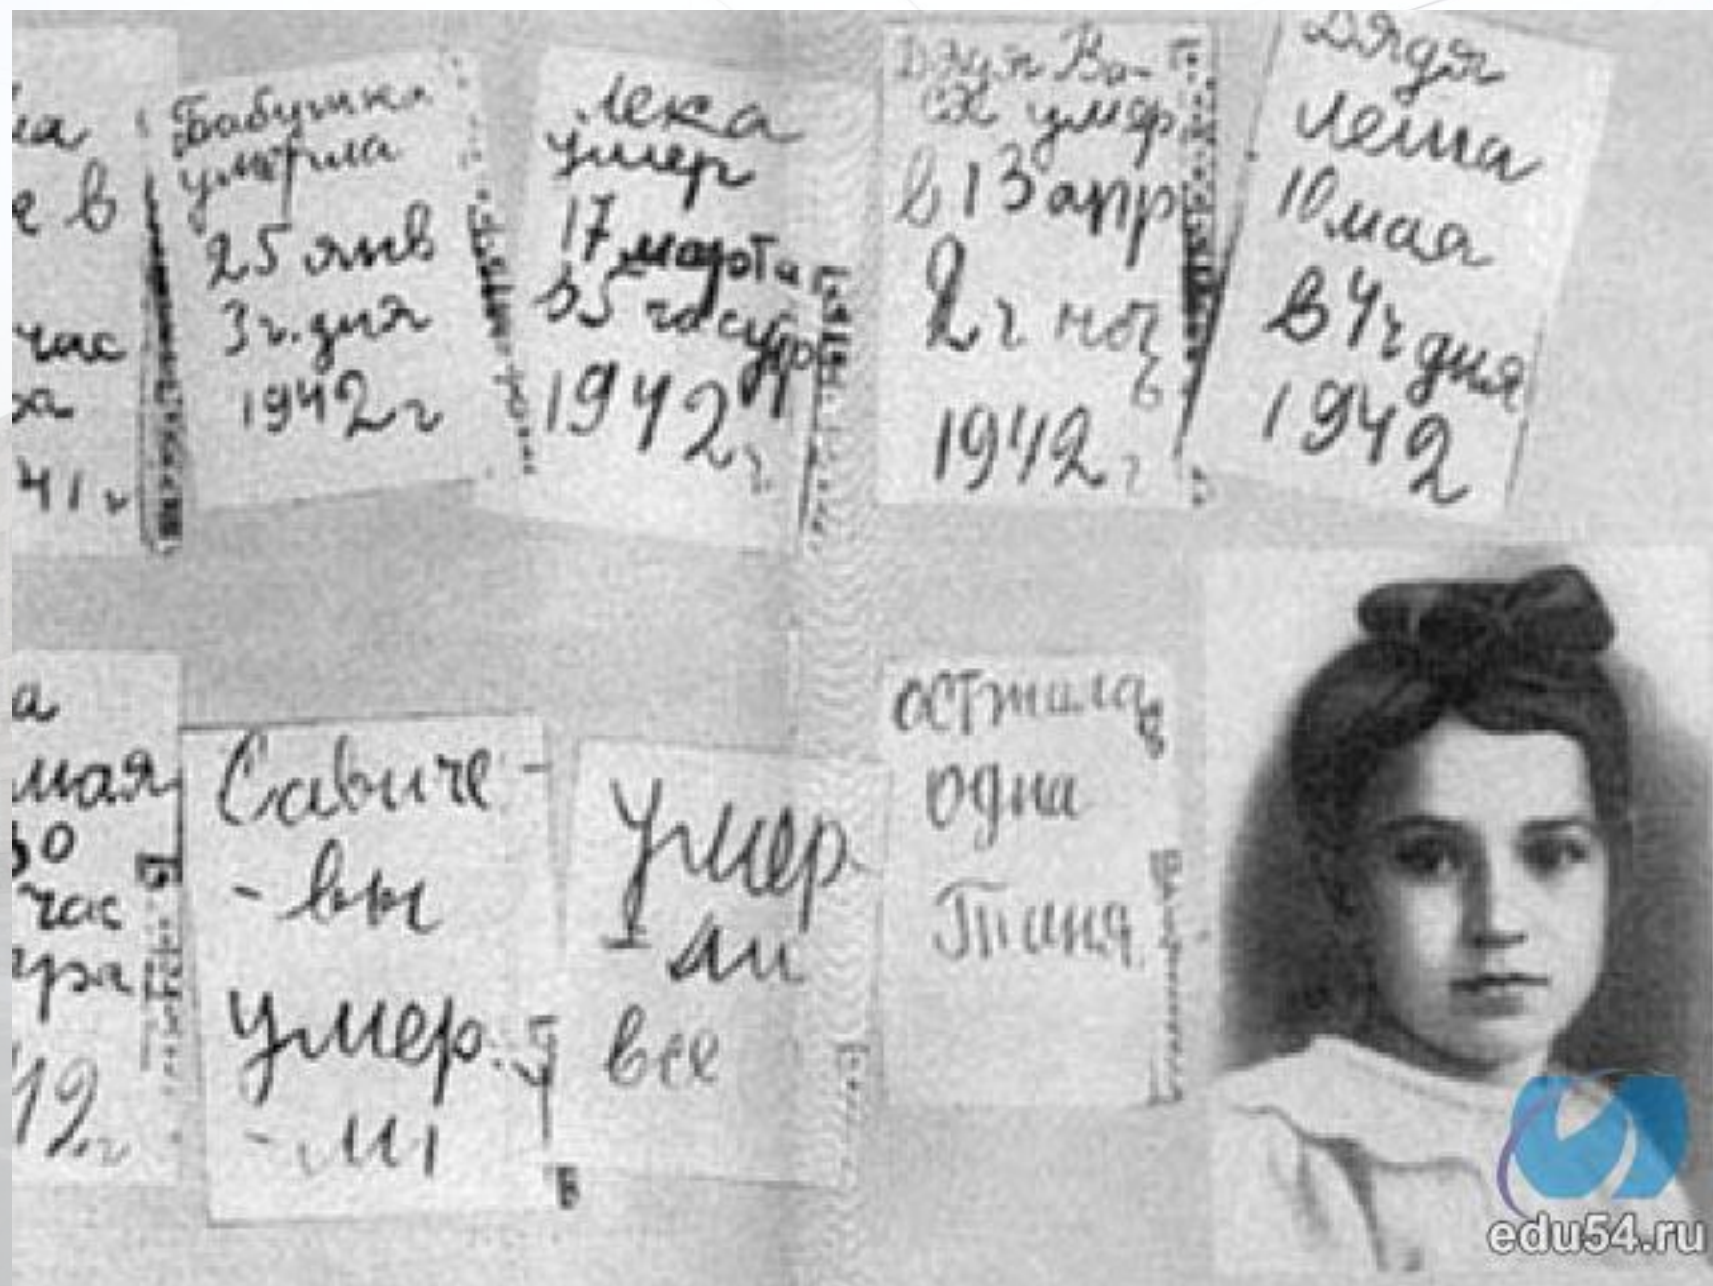 ча
е в
час
ра
41 г
Бабушка
умерла
25 янв
3 ч. дня
1942 г
Лека
умер
17 марта
в 5 час утр
1942 г.
Дядя Ва-
ся умер
в 13 апр
2 ч ноч
ь
1942 г
Дядя
Леша
10 мая
в 4 ч дня
1942
а
мая
30
час
тра
42 г
Савиче-
-вы
умер
-ли
Умер
-ли
все
осталась
одна
Таня
edu54.ru